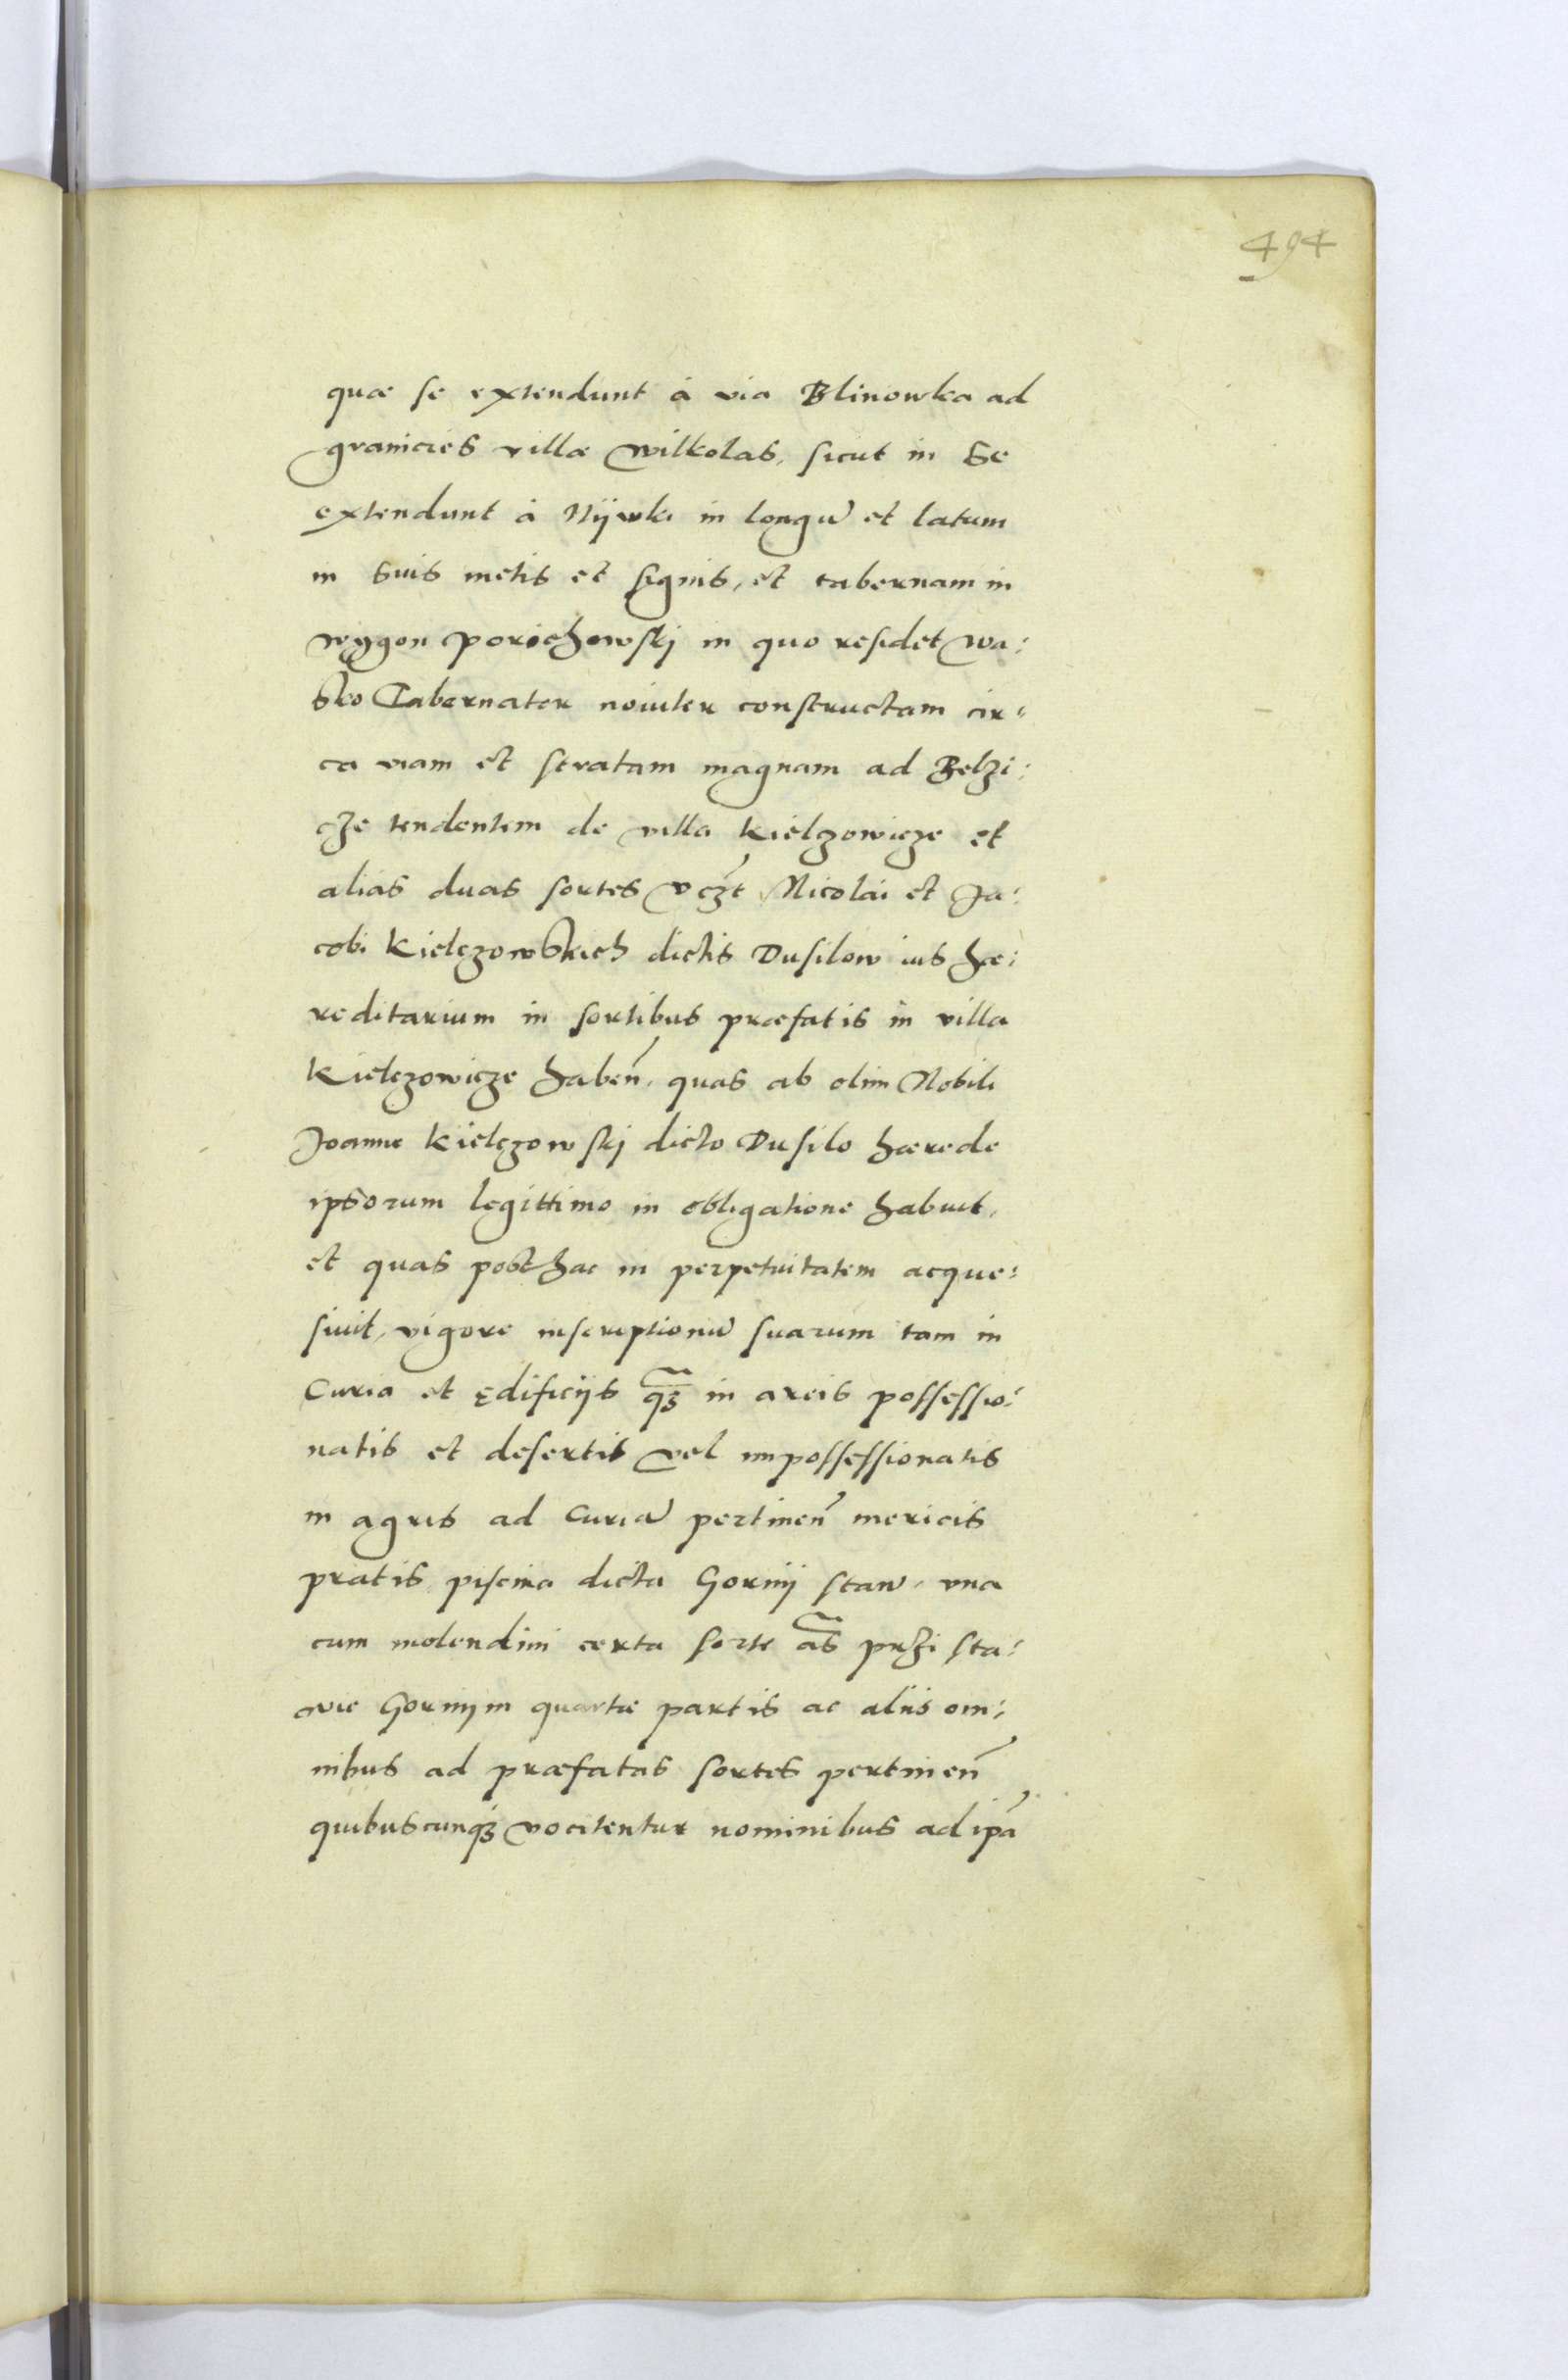 494
quæ se extendunt á via Blinowka ad
granicies villæ Wilkolas, sicut in se
extendunt á Nijwki in longũ et latum
in suis metis et signis, et tabernam in
wygon Porichowskj in quo residet Wa:
sko Tabernator noviter constructam cir:
ca viam et stratam magnam ad Belzi:
cze tendentem de villa Kielczowicze et
alias duas sortes vczt Nicolai et Ja:
cobi Kielczowskich dictis Dusilow ius hæ:
reditarium in sortibus præfatis in villa
Kielczowicze haben̄, quas ab olim Nobili
Joanne Kielczowskj dicto Dusilo hærede
ipsorum legittimo in obligatione habuit,
et quas posthac in perpetuitatem acque:
sivit, vigore inscriptionũ suarum tam in
Curia et ędificijs q̃ȝ in areis possessio:
natis et desertis vel impossessionatis
in agris ad Curiã pertinen̄ mericis
pratis piscina dicta Gornij staw, vna
cum molendini certa sorte ãs przi sta:
wie Gornijm quartæ partis ac aliis om:
nibus ad præfatas sortes pertinen̄
quibuscunqȝ vocitentur nominibus ad ip̃a